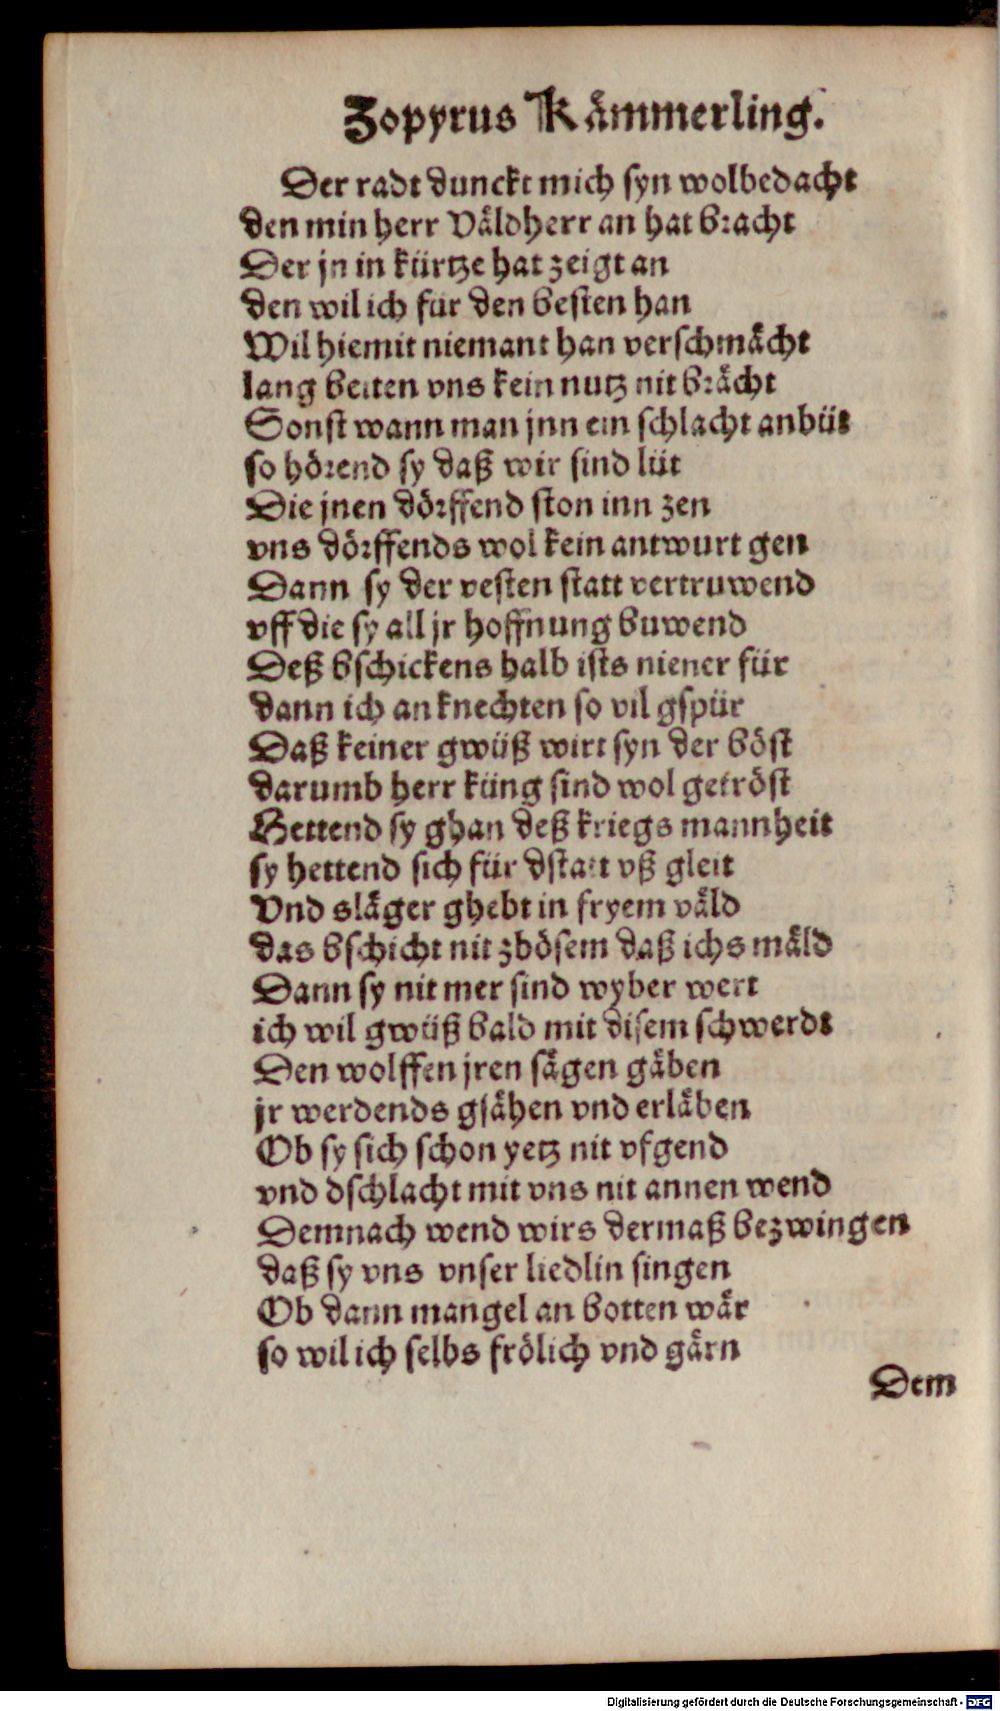 Zopyrus Kämmerling.
Der radt dunckt mich syn wolbedacht
den min herr Väldherr an hat bracht
Der jn in kürtze hat zeigt an
den wil ich für den besten han
Wil hiemit niemant han verschmächt
lang beiten vns kein nutz nit brächt
Sonst wann man jnn ein schlacht anbüt
so hörend sy daß wir sind lüt
Die jnen dörffend ston inn zen
vns dörffends wol kein antwurt gen
Dann sy der vesten statt vertruwend
vff die sy all jr hoffnung buwend
Deß bschickens halb ists niener für
dann ich an knechten so vil gspür
Daß keiner gwüß wirt syn der böst
darumb herr küng sind wol getröst
Hettend sy ghan deß kriegs mannheit
sy hettend sich für dstatt vß gleit
Vnd släger ghebt in fryem väld
das bschicht nit zbösem daß ichs mäld
Dann sy nit mer sind wyber wert
ich wil gwüß bald mit disem schwerdt
Den wolffen jren sägen gäben
jr werdends gsähen vnd erläben
Ob sy sich schon yetz nit vfgend
vnd dschlacht mit vns nit annen wend
Demnach wend wirs dermaß bezwingen
daß sy vns vnser liedlin singen
Ob dann mangel an botten wär
so wil ich selbs frölich vnd gärn
Dem
Digitalisierung gefördert durch die Deutsche Forschungsgemeinschaft - DFG